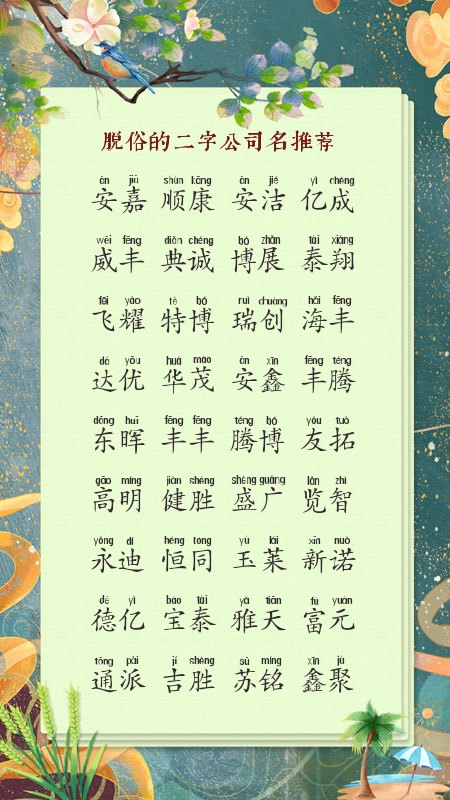 脱俗的二字公司名推荐
ān jiā shùn kāng ān jié yì chéng
安嘉 顺康 安洁 亿成
wēi fēng diǎn chéng bó zhǎn tài xiáng
威丰 典诚 博展 泰翔
fēi yào tè bó ruì chuàng hǎi fēng
飞耀 特博 瑞创 海丰
dá yōu huá mào ān xīn fēng téng
达优 华茂 安鑫 丰腾
dōng huī fēng fēng téng bó yǒu tuò
东晖 丰丰 腾博 友拓
gāo míng jiàn shèng shèng guǎng lǎn zhì
高明 健胜 盛广 览智
yǒng dí héng tóng yù lái xīn nuò
永迪 恒同 玉莱 新诺
dé yì bǎo tài yǎ tiān fù yuán
德亿 宝泰 雅天 富元
tōng pài jí shèng sū míng xīn jù
通派 吉胜 苏铭 鑫聚